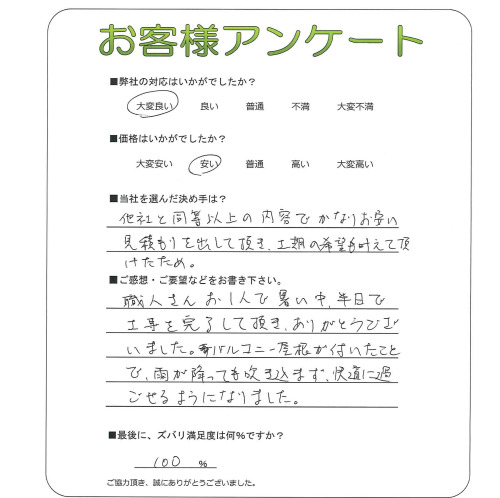 お客様アンケート
■弊社の対応はいかがでしたか？
大変良い 良い 普通 不満 大変不満
■価格はいかがでしたか？
大変安い 安い 普通 高い 大変高い
■当社を選んだ決め手は？
他社と同等以上の内容でかなりお安い
見積もりを出して頂き、工期の希望も叶えて頂
けたため。
■ご感想・ご要望などをお書き下さい。
職人さんお1人で暑い中、半日で
工事を完了して頂き、ありがとうござ
いました。バルコニー屋根が付いたこと
で、雨が降っても吹き込まず、快適に過
ごせるようになりました。
■最後に、ズバリ満足度は何%ですか？
100 %
ご協力頂き、誠にありがとうございました。